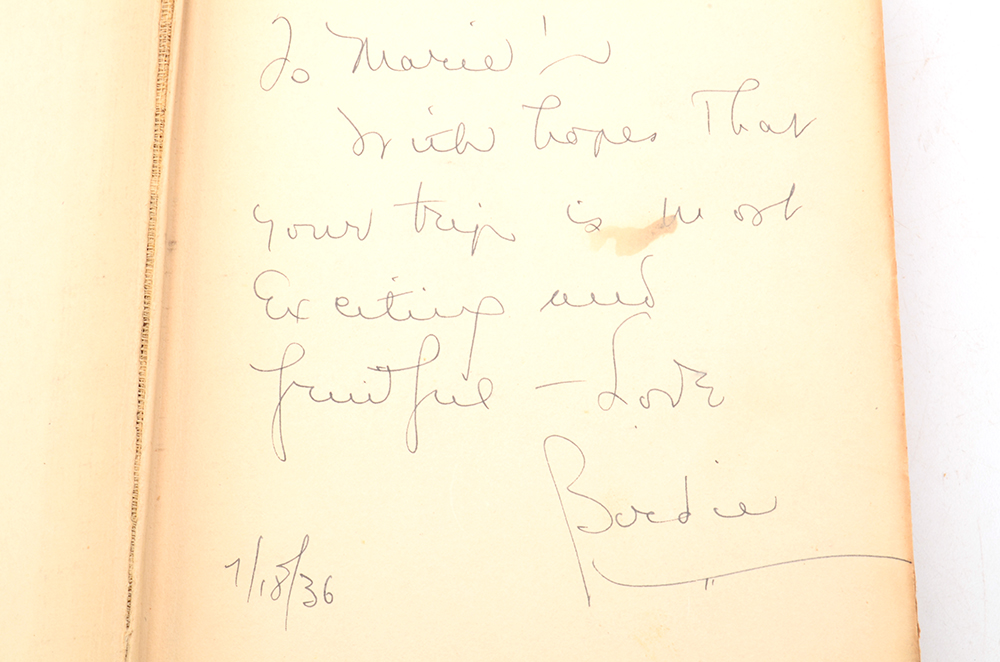 To Marie!~
With hopes That
your trip is most
Exciting and
fruitful — Love
Birdie
7/18/36